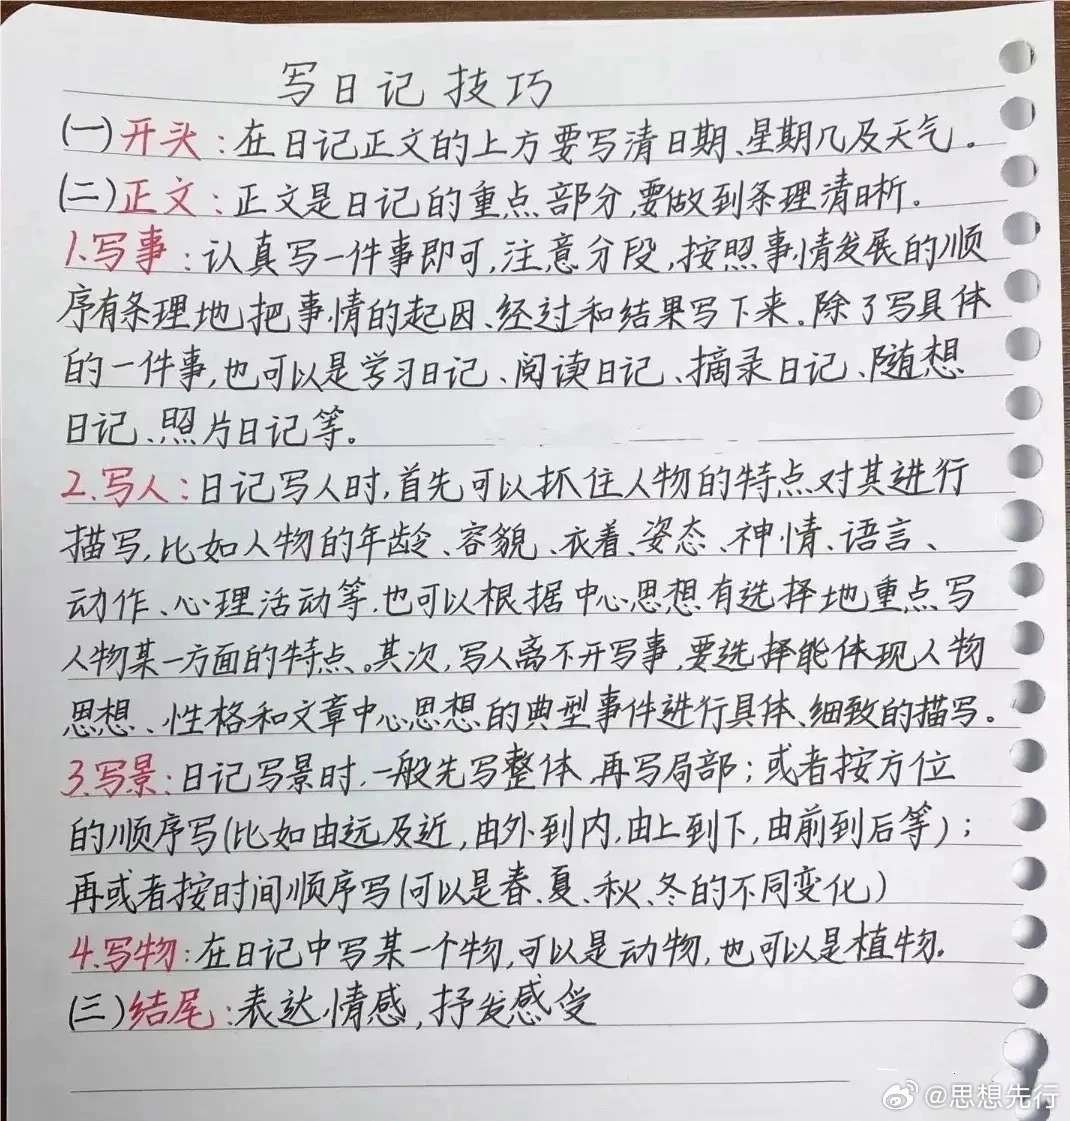 写日记技巧
(一)开头:在日记正文的上方要写清日期、星期几及天气。
(二)正文:正文是日记的重点部分,要做到条理清晰。
1.写事:认真写一件事即可,注意分段,按照事情发展的顺
序有条理地把事情的起因、经过和结果写下来。除了写具体
的一件事,也可以是学习日记、阅读日记、摘录日记、随想
日记、照片日记等。
2.写人:日记写人时,首先可以抓住人物的特点对其进行
描写,比如人物的年龄、容貌、衣着、姿态、神情、语言、
动作、心理活动等,也可以根据中心思想有选择地重点写
人物某一方面的特点。其次,写人离不开写事,要选择能体现人物
思想、性格和文章中心思想的典型事件进行具体、细致的描写。
3.写景:日记写景时,一般先写整体,再写局部;或者按方位
的顺序写(比如由远及近,由外到内,由上到下,由前到后等);
再或者按时间顺序写(可以是春、夏、秋、冬的不同变化)
4.写物:在日记中写某一个物,可以是动物,也可以是植物.
(三)结尾:表达情感,抒发感受
@思想先行